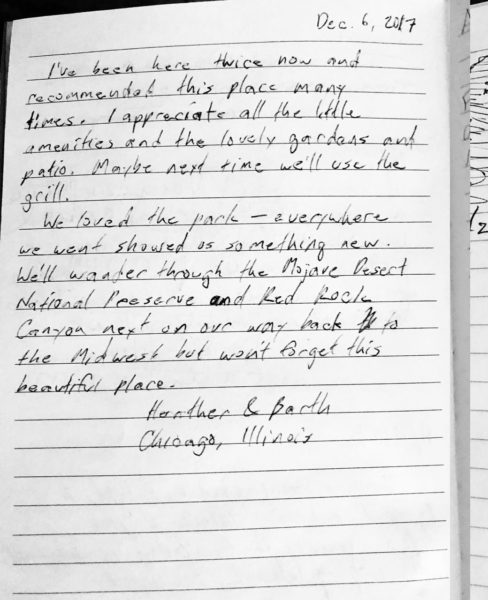 Dec. 6, 2017
I've been here twice now and
recommended this place many
times. I appreciate all the little
amenities and the lovely gardens and
patio. Maybe next time we'll use the
grill.
We loved the park — everywhere
we went showed us something new.
We'll wander through the Mojave Desert
National Preserve and Red Rock
Canyon next on our way back to
the Midwest but won't forget this
beautiful place.
Heather & Barth
Chicago, Illinois